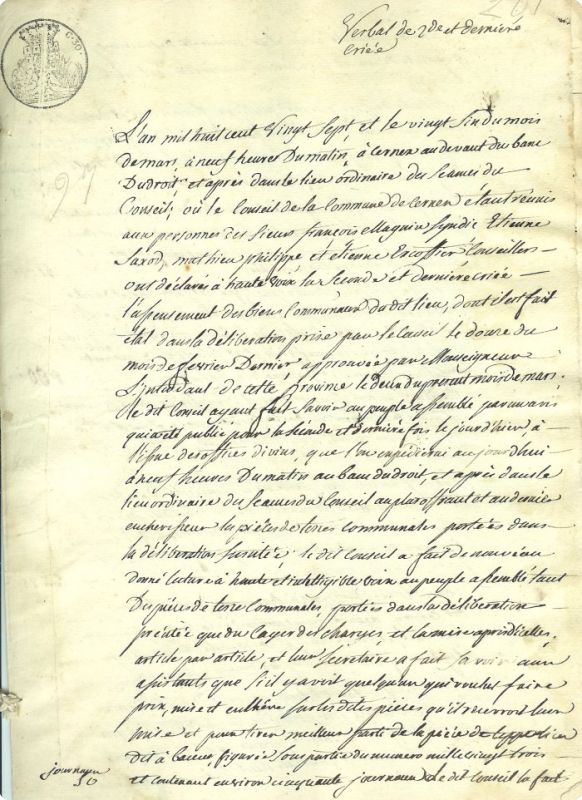 Verbal de 2de et derniere
criée
L'an mil huit cent vingt sept et le vingt six du mois
de mars, à neuf heures du matin, à Cernex au devant du banc
du droit, et après dans le lieu ordinaire des séances du
Conseil; où le Conseil de la Commune de Cernex étant réunis
aux personnes des sieurs françois Magnin Syndic Etienne
Saxod, mathieu philippe et étienne Escoffier Conseillers
ont déclarés à haute voix la seconde et derniere criée
l'assensement des biens Communaux du dit lieu, dont il est fait
etat dans la délibération prise par le Conseil le douze du
mois de fevrier dernier approuvée par Monseigneur
L'intendant de cette province le deux du présent mois de mars.
le dit Conseil ayant fait savoir au peuple assemblé par un avis
qui a eté publié pour la seconde et derniere fois le jour d'hier à
l'issue des offices divins, que l'on expédierai aujourd'hui
à neuf heures du matin au banc du droit, et après dans le
lieu ordinaire des séances du Conseil au plus offrant et au dernier
encherisseur la pièces de terres communales portées dans
la délibération susvitée le dit Conseil a fait de nouveau
donné lecture à haute et intelligible voix au peuple assemblé tant
des pièces de terre Communales, portées dans la délibération
précitée que du cayer des charges, et la mise à prix d'icelles,
article par article, et leur secretaire a fait savoir aux
assistants que s'il y avoit quelqu'un qui voulut faire
prix, mise et enchère sur les dites pièces qu'il recevront leur
mise et pour tirer meilleur parti de la pièce de lieu
dit à figurée sous partie du numero mille vingt trois
journaux
50
et contenant environ cinquante journaux le dit Conseil la fait
G.30